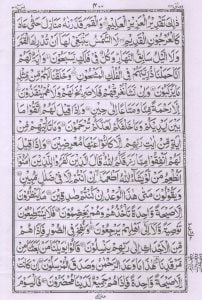 ٤٠٠
ذٰلِكَ تَقْدِيْرُ الْعَزِيْزِ الْعَلِيْمِ وَالْقَمَرَ قَدَّرْنٰهُ مَنَازِلَ حَتّٰى عَادَ
كَالْعُرْجُوْنِ الْقَدِيْمِ لَا الشَّمْسُ يَنْۢبَغِيْ لَهَآ اَنْ تُدْرِكَ الْقَمَرَ
وَلَا الَّيْلُ سَابِقُ النَّهَارِ وَكُلٌّ فِيْ فَلَكٍ يَّسْبَحُوْنَ وَاٰيَةٌ لَّهُمْ
اَنَّا حَمَلْنَا ذُرِّيَّتَهُمْ فِي الْفُلْكِ الْمَشْحُوْنِ وَخَلَقْنَا لَهُمْ مِّنْ مِّثْلِهٖ
مَا يَرْكَبُوْنَ وَاِنْ نَّشَاْ نُغْرِقْهُمْ فَلَا صَرِيْخَ لَهُمْ وَلَا هُمْ يُنْقَذُوْنَ
اِلَّا رَحْمَةً مِّنَّا وَمَتَاعًا اِلٰى حِيْنٍ وَاِذَا قِيْلَ لَهُمُ اتَّقُوْا مَا
بَيْنَ اَيْدِيْكُمْ وَمَا خَلْفَكُمْ لَعَلَّكُمْ تُرْحَمُوْنَ وَمَا تَاْتِيْهِمْ مِّنْ
اٰيَةٍ مِّنْ اٰيٰتِ رَبِّهِمْ اِلَّا كَانُوْا عَنْهَا مُعْرِضِيْنَ وَاِذَا قِيْلَ
لَهُمْ اَنْفِقُوْا مِمَّا رَزَقَكُمُ اللّٰهُ قَالَ الَّذِيْنَ كَفَرُوْا لِلَّذِيْنَ اٰمَنُوْٓا
اَنُطْعِمُ مَنْ لَّوْ يَشَآءُ اللّٰهُ اَطْعَمَهٗٓ اِنْ اَنْتُمْ اِلَّا فِيْ ضَلٰلٍ مُّبِيْنٍ
وَيَقُوْلُوْنَ مَتٰى هٰذَا الْوَعْدُ اِنْ كُنْتُمْ صٰدِقِيْنَ مَا يَنْظُرُوْنَ
اِلَّا صَيْحَةً وَّاحِدَةً تَاْخُذُهُمْ وَهُمْ يَخِصِّمُوْنَ فَلَا يَسْتَطِيْعُوْنَ
تَوْصِيَةً وَّلَآ اِلٰٓى اَهْلِهِمْ يَرْجِعُوْنَ وَنُفِخَ فِي الصُّوْرِ فَاِذَا هُمْ
مِّنَ الْاَجْدَاثِ اِلٰى رَبِّهِمْ يَنْسِلُوْنَ قَالُوْا يٰوَيْلَنَا مَنْۢ بَعَثَنَا مِنْ
مَّرْقَدِنَا هٰذَا مَا وَعَدَ الرَّحْمٰنُ وَصَدَقَ الْمُرْسَلُوْنَ اِنْ كَانَتْ
اِلَّا صَيْحَةً وَّاحِدَةً فَاِذَا هُمْ جَمِيْعٌ لَّدَيْنَا مُحْضَرُوْنَ فَالْيَوْمَ